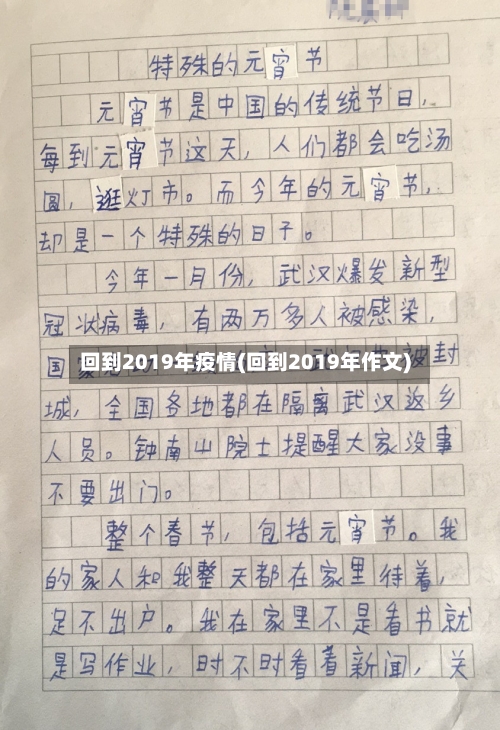 特殊的元宵节
元宵节是中国的传统节日，
每到元宵节这天，人们都会吃汤
圆，逛灯市。而今年的元宵节，
却是一个特殊的日子。
今年一月份，武汉爆发新型
冠状病毒，有两万多人被感染，
国
回到2019年疫情(回到2019年作文)
被封
城，全国各地都在隔离武汉返乡
人员。钟南山院士提醒大家没事
不要出门。
整个春节，包括元宵节。我
的家人和我整天都在家里待着，
足不出户。我在家里不是看书就
是写作业，时不时看看新闻，关